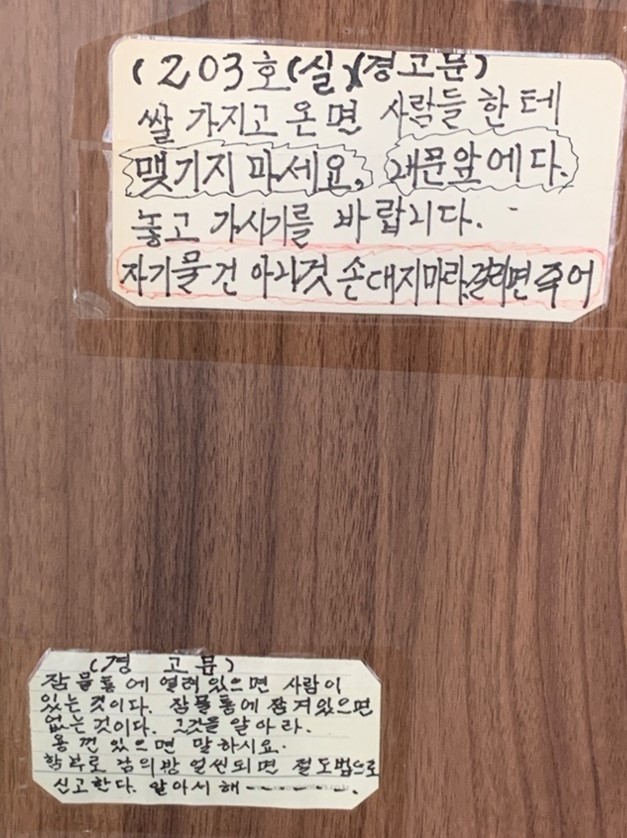 (203호(실)(경고문)
쌀 가지고 온면 사람들 한테
맺기지 마세요, 대문앞에다.
놓고 가시기를 바랍니다.
자기물건 아라것 손대지마라,걸리면 죽어
(경 고 문)
잠물통에 열려 있으면 사람이
있는것이다. 잠물통에 잠겨있으면
없는것이다. 그것을 알아라.
용껀있으면 말하시요.
함부로 남의방 얼씬되면 절도법으로
신고한다. 알아서 해